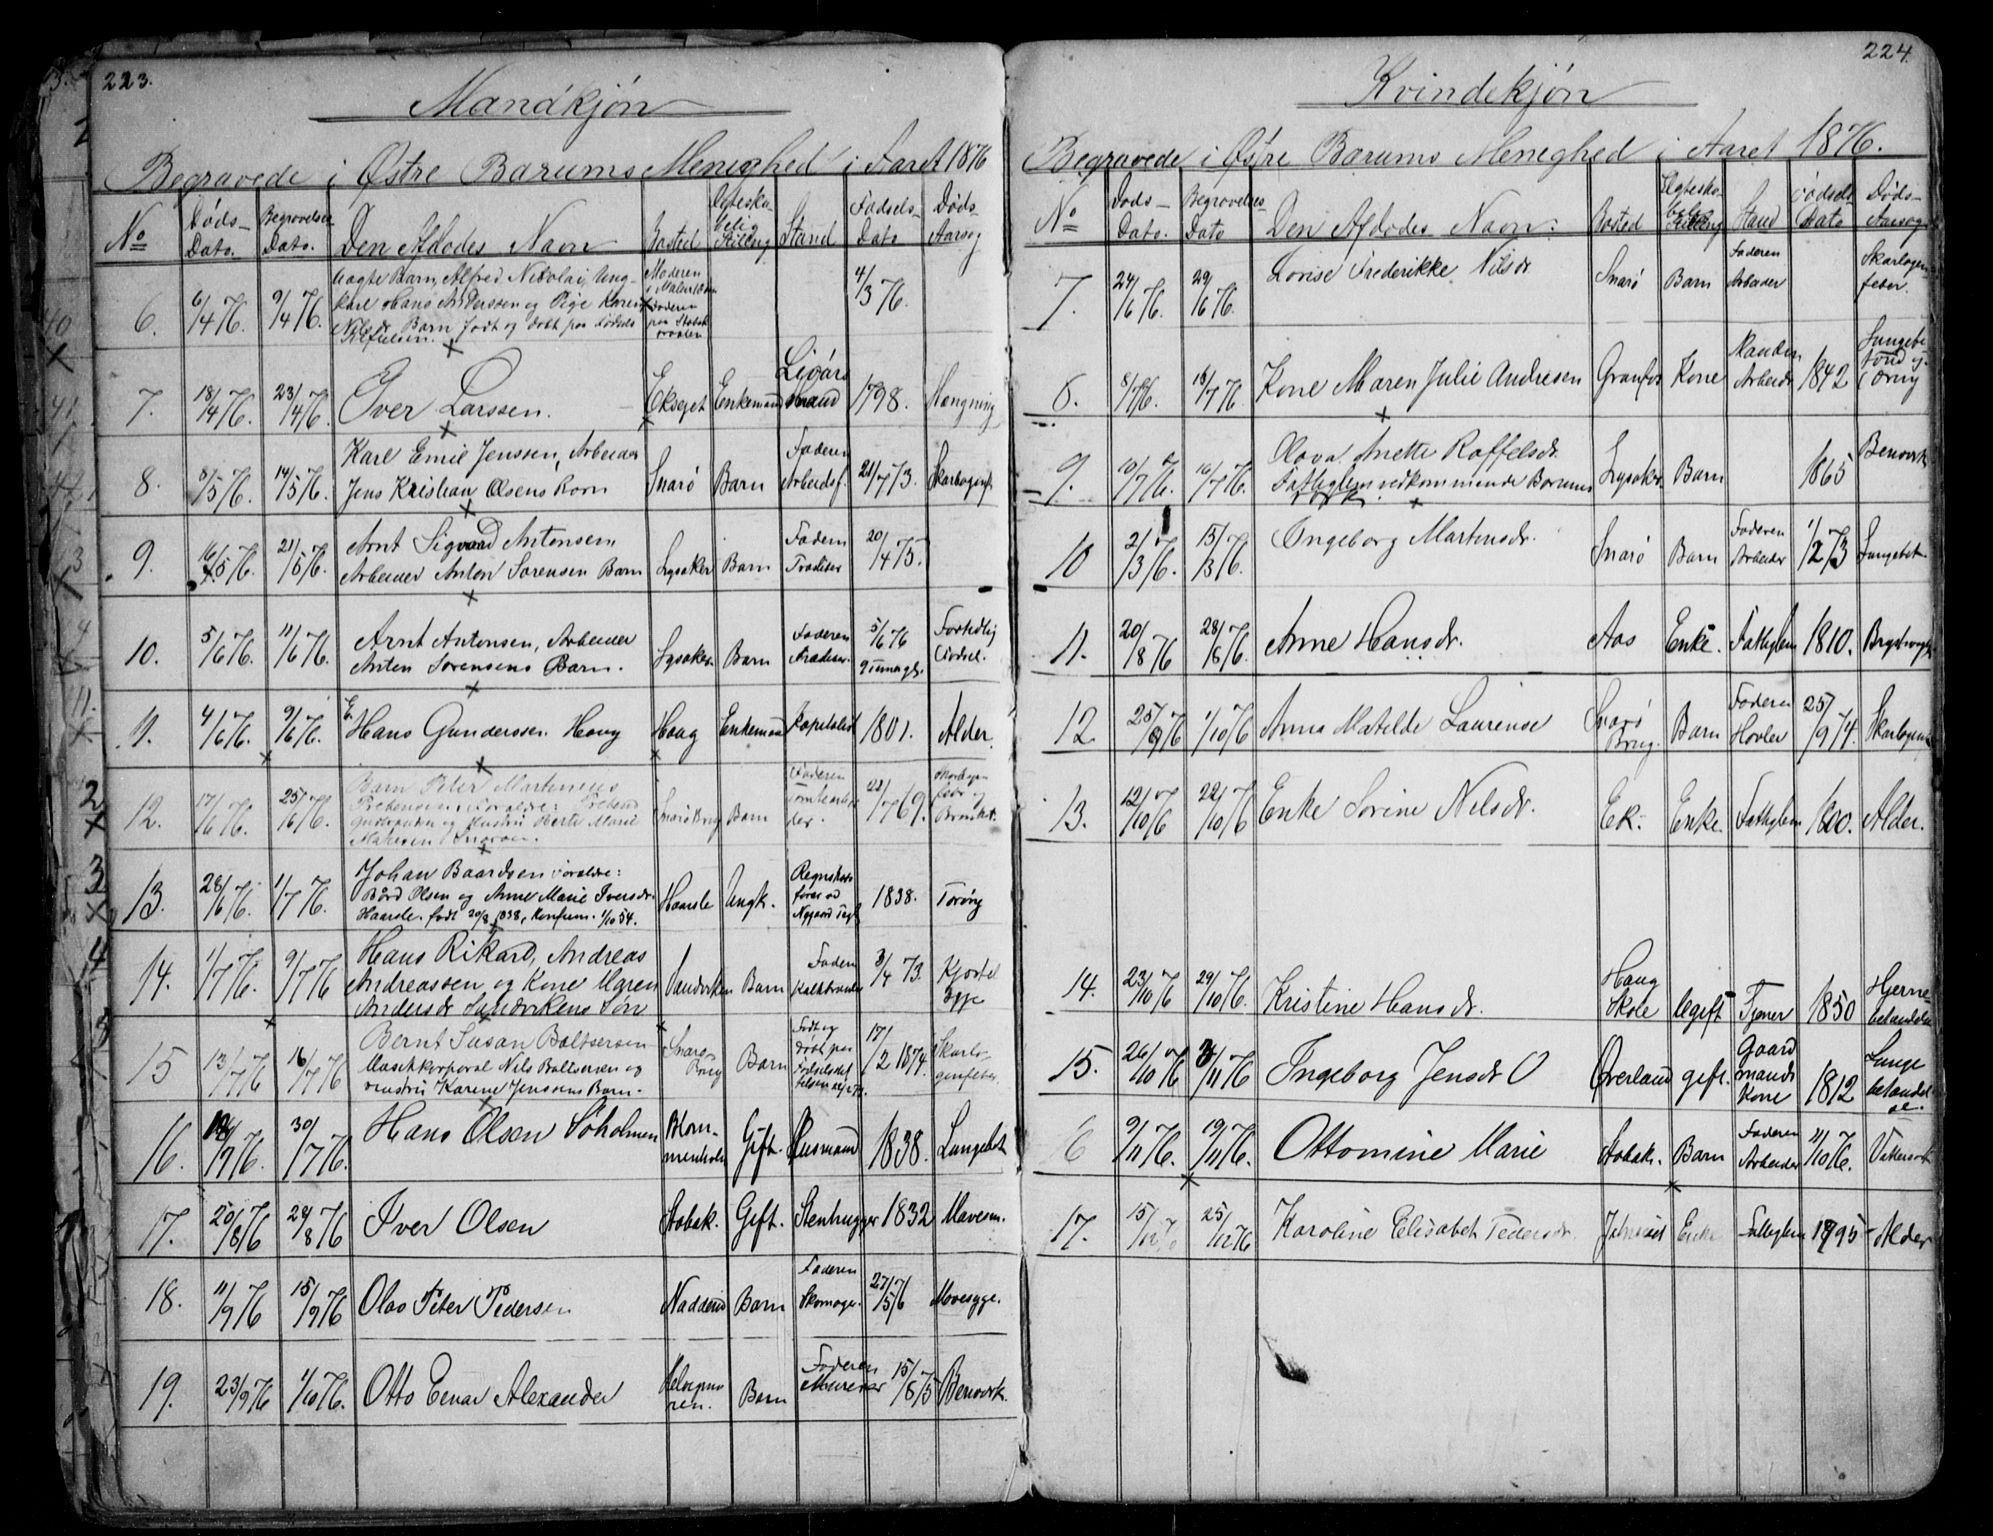 223.
Mandkjøn
Begravede i Østre Bærums Menighed i Aaret 1876
No Døds-Dato. Begravelses Dato. Den Afdødes Navn Bosted Egteskabelig Stilling Stand Fødsels Dato Døds-Aarsag
6. 6/4 76. 9/4 76. Uægte Barn, Alfred Nikolai, Ung-
karl Hans Anderssen og Pige Karen
Nilsdr. Barn født og døbt paa Fødsels
Stiftelsen. Moderen Faderen paa Stabæk 4/3 76.
7. 18/4 76. 23/4 76. Iver Larssen. Ekseget Enkemand 1798. Hængning
8. 8/5 76. 14/5 76. Karl Emil Jenssen, Arbeider
Jens Kristian Olsens Barn Snarø Barn Faderen Arbeidsf. 21/7 73. Skarlagenf.
9. 16/5 76. 21/5 76. Arnt Sigvard Antonsen
Arbeider Anton Sørensen Barn Lysaker Barn Faderen 20/4 75.
10. 5/6 76. 11/6 76. Arnt Antonsen, Arbeider
Anton Sørensens Barn. Lysaker Barn Faderen 5/6 76
11. 4/6 76. 9/6 76. Hans Gunderssen Haug Haug Enkemand Kapitalist 1801. Alder.
12. 17/6 76. 25/6 76. Barn Peter Martinius
Hustru Berte Marie
Snarø Brug Barn Faderen 22/7 69.
13. 28/6 76. 1/7 76. Johan Baardsen Forældre:
Bård Olsen og Anne Marie Iversdr.
Haarsle. født 20/8 1838, Konfirm. 1/10 54. Haarsle Ungk. 1838. Tæring
14. 1/7 76. 9/7 76 Hans Rikard, Andreas
Andreassen og Kone Maren
Andersdr Sandvikens Søn Sandviken Barn Faderen 3/4 73.
15 13/7 76 16/7 76 Bernt Susan Baltsersen
Musikkorporal Nils Baltsersen og
Hustru Karine Jenssens Barn. Snarø Brug Barn 17/2 1874. Skarlagenfeber
16. 30/7 76. Hans Olsen Søholmen Blommenholm Gift. Husmand 1838. Lungebet.
17. 20/8 76 28/8 76 Iver Olsen Stabæk. Gift. Stenhugger 1832 Mavesm.
18. 11/9 76 15/9 76 Olaf Peter Pedersen Nadderud Barn Faderen Skomager. 27/5 76 Mavesyge.
19. 23/9 76 1/10 76. Otto Einar Alexander Barn Faderen Murer 15/8 75 Benævrk.
224.
Kvindekjøn
Begravede i Østre Bærums Menighed i Aaret 1876.
No Døds-Dato. Begravelses-Dato Den Afdødes Navn: Bosted Egteskabelig Stilling Stand Fødsels Dato Døds-Aarsag
7. 24/6 76. 29/6 76. Lovise Frederikke Nilsdr Snarø Barn Faderen Arbeider Skarlagenfeber.
8. 8/7 76. 16/7 76. Kone Maren Julie Andresen Granfos Kone Manden Arbeider 1842
9. 10/7 76. 16/7 76. Olava Anette Roffelsdr.
Fattiglem vedkommende Bærums Lysaker Barn 1865
10 15/ 76. Ingeborg Martinsdr. Snarø Barn Faderen Arbeider 1/2 73 Lungebet.
11. 20/8 76 28/8 76. Anne Hansdr. Aas Enke. Fattiglem 1810.
12. 25/9 76 1/10 76 Anna Matilde Laurense Snarø Brug. Barn Faderen Høvler 25/9 74.
13. 12/10 76 22/10 76 Enke Sørine Nilsdr. Ek. Enke. Fattiglem 1800. Alder.
14. 23/10 76 29/10 76. Kristine Hansdr. Haug Skole Ugift Tjener 1850 Hjerne
15. 26/10 76 /11 76 Ingeborg Jensdr Ø Øverland gift. Gaard mands Kone 1812 Lunge
16 9/11 76. 19/11 76. Ottomine Marie Stabæk. Barn Faderen Arbeider 11/10 76. Vattersot
17. 15/12 76 25/12 76 Karoline Elisabet Pedersdr. Enke Fattiglem 1795 Alder